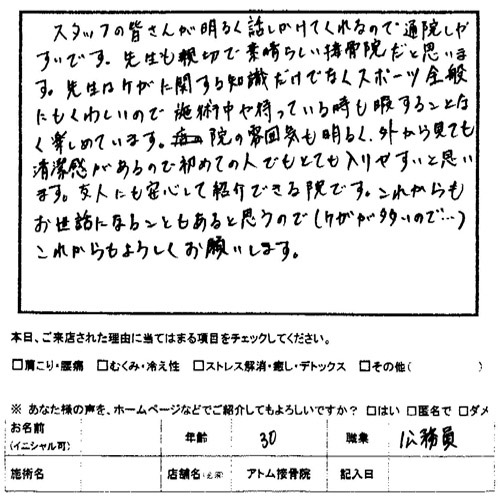 スタッフの皆さんが明るく話しかけてくれるので通院しや
すいです。先生も親切で素晴らしい接骨院だと思いま
す。先生はケガに関する知識だけでなくスポーツ全般
にもくわしいので施術中や待っている時も暇することな
く楽しめています。院の雰囲気も明るく、外から見ても
清潔感があるので初めての人でもとても入りやすいと思い
ます。友人にも安心して紹介できる院です。これからも
お世話になることもあると思うので(ケガが多いので…)
これからもよろしくお願いします。
本日、ご来店された理由に当てはまる項目をチェックしてください。
□肩こり・腰痛 □むくみ・冷え性 □ストレス解消・癒し・デトックス □その他( )
※ あなた様の声を、ホームページなどでご紹介してもよろしいですか? □はい □匿名で □ダメ
お名前
(イニシャル可) 年齢 30 職業 公務員
施術名 店舗名 アトム接骨院 記入日